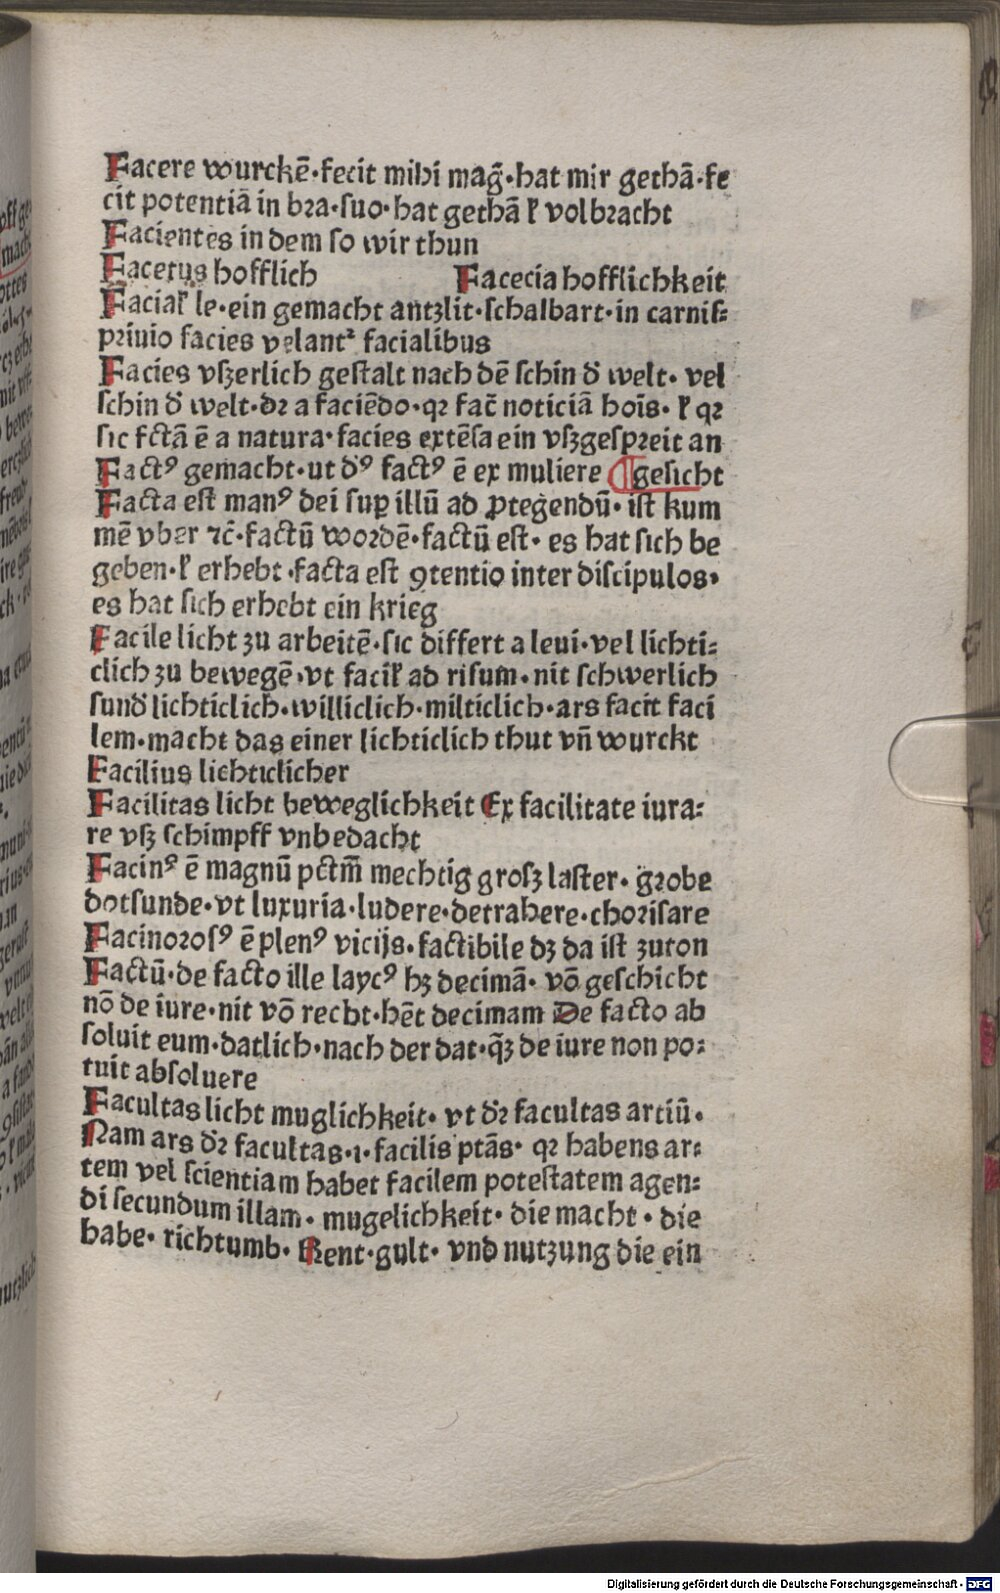 Facere wurckē·fecit mihi mag̃·hat mir gethā·fe
cit potentiā in bra·suo·hat gethā ł volbracht
Facientes in dem so wir thun
Facetus hofflich Facecia hofflichkeit
Faciał le·ein gemacht antzlit·schalbart·in carnis⸗
priuio facies velantᷣ facialibus
Facies vszerlich gestalt nach dē schin d̕ welt· vel
schin d̕ welt·dꝛ a faciēdo·qꝛ fac̄ noticiā hoīs· ł qꝛ
sic fctā ē a natura·facies extēsa ein vszgespreit an
Factꝰ gemacht·ut dꝰ factꝰ ē ex muliere ¶gesicht
Facta est manꝰ dei suꝑ illū ad ꝓtegendū· ist kum
mē vber ⁊c̄·factū wordē·factū est· es hat sich be
geben·ł erhebt·facta est ꝯtentio inter discipulos·
es hat sich erhebt ein krieg
Facile licht zu arbeitē·sic differt a leui·vel lichti⸗
clich zu bewegē·vt facił ad risum·nit schwerlich
sund̕ lichticlich·williclich·milticlich·ars facit faci
lem·macht das einer lichticlich thut vn̄ wurckt
Facilius lichticlicher
Facilitas licht beweglichkeit Ex facilitate iura⸗
re vsz schimpff vnbedacht
Facinꝰ ē magnū pctm̄ mechtig grosz laster· grobe
dotsunde·vt luxuria·ludere·detrahere·chorisare
Facinorosꝰ ē plenꝰ vicijs·factibile dz da ist zuton
Factū·de facto ille laycꝰ hz decimā· vō geschicht
nō de iure·nit vō recht·hēt decimam De facto ab
soluit eum·datlich·nach der dat·q̄ꝫ de iure non po⸗
tuit absoluere
Facultas licht muglichkeit· vt dꝛ̄ facultas artiū·
Nam ars dꝛ̄ facultas·ı·facilis ptās· qꝛ habens ar⸗
tem vel scientiam habet facilem potestatem agen⸗
di secundum illam· mugelichkeit· die macht· die
habe· richtumb· Rent·gult· vnd nutzung die ein
Digitalisierung gefördert durch die Deutsche Forschungsgemeinschaft · DFG